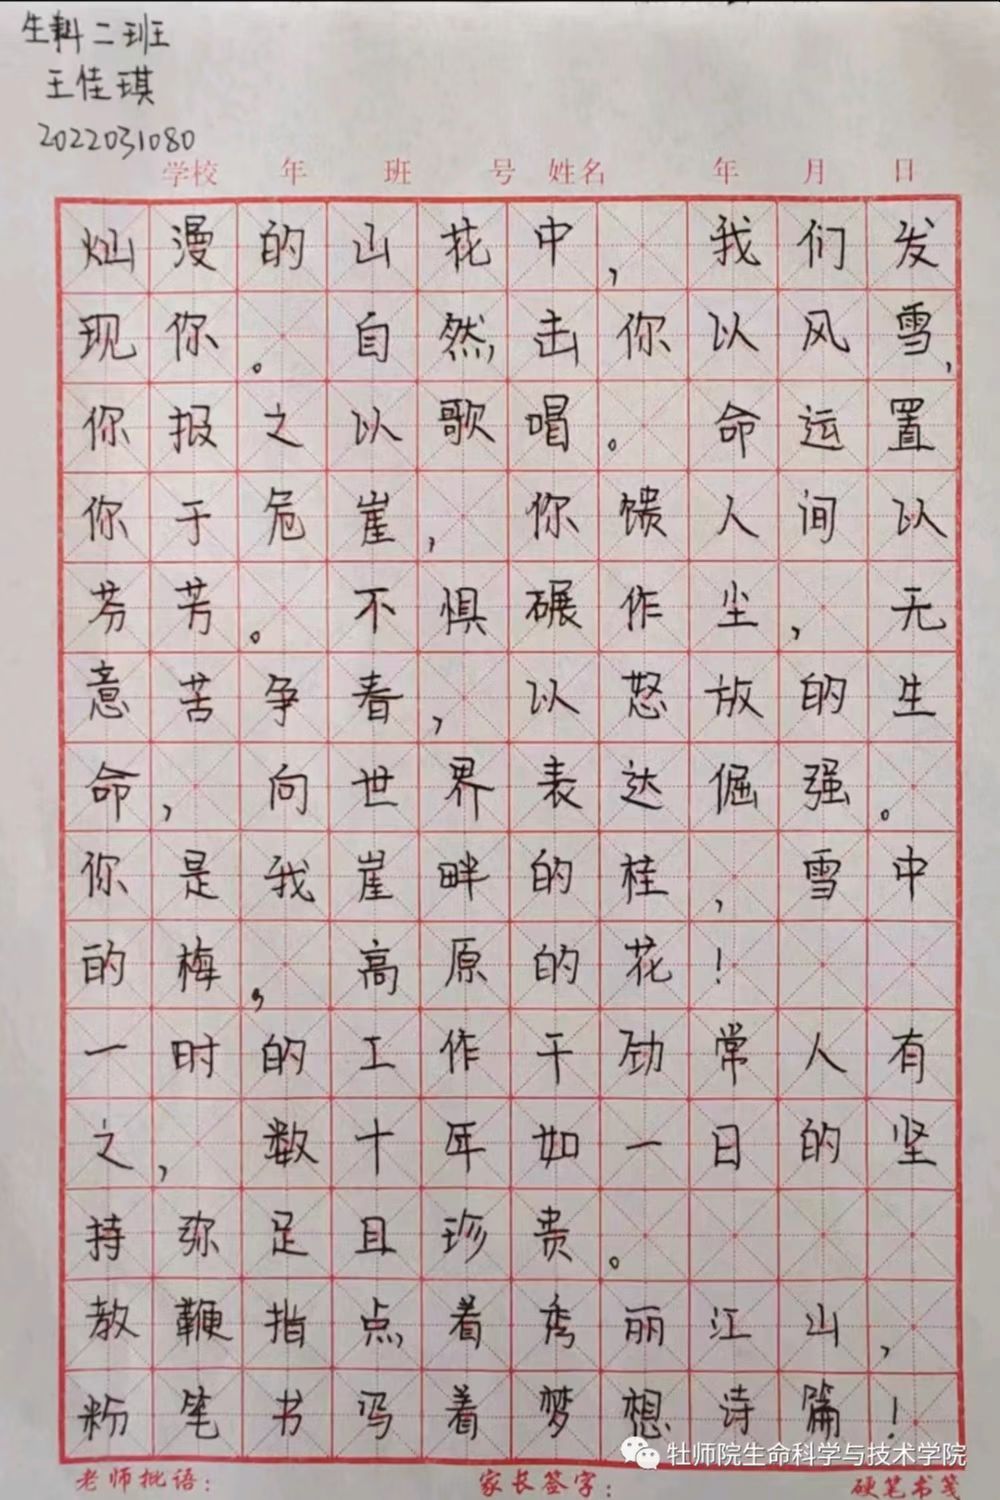 生科二班
王佳琪
2022031080
学校 年 班 号 姓名 年 月 日
灿漫的山花中，我们发
现你。自然击你以风雪，
你报之以歌唱。命运置
你于危崖，你馈人间以
芬芳。不惧碾作尘，无
意苦争春，以怒放的生
命，向世界表达倔强。
你是我崖畔的桂，雪中
的梅，高原的花！
一时的工作干劲常人有
之，数十年如一日的坚
持弥足且珍贵。
教鞭指点着秀丽江山，
粉笔书写着梦想诗篇！
老师批语： 家长签字： 硬笔书笺
牡师院生命科学与技术学院